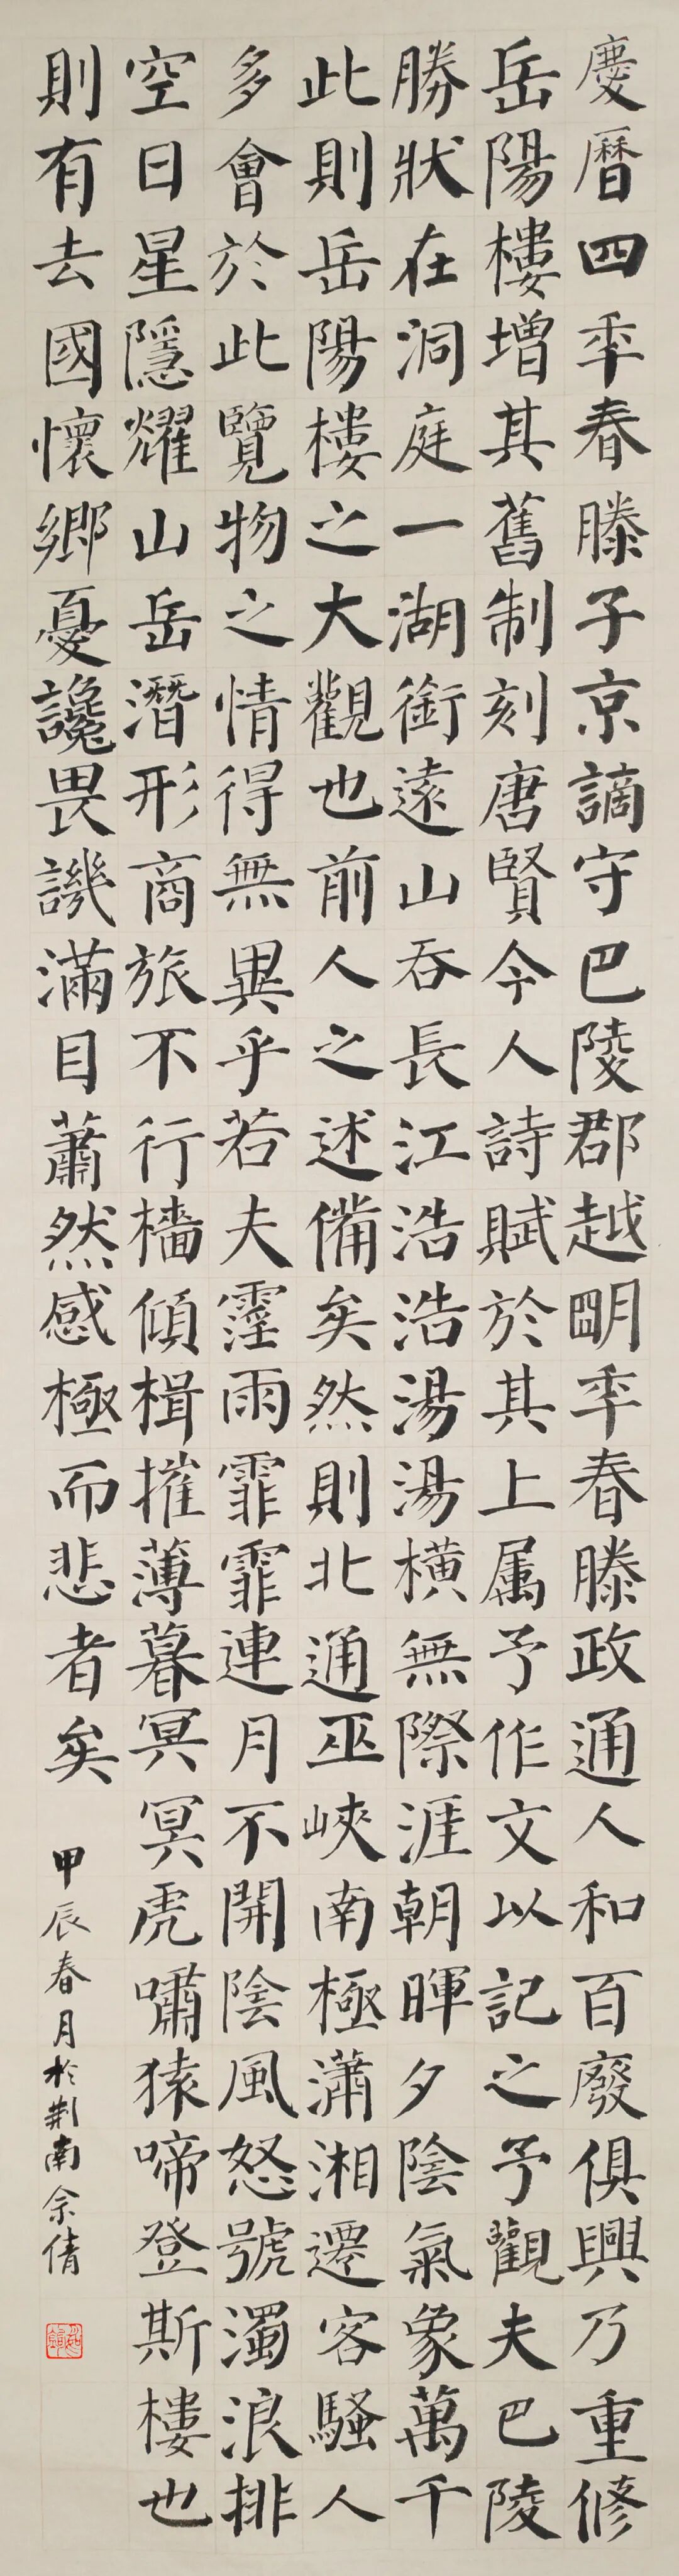 慶曆四年春滕子京謫守巴陵郡越朙年春滕政通人和百廢俱興乃重修
岳陽樓增其舊制刻唐賢今人詩賦於其上属予作文以記之予觀夫巴陵
勝狀在洞庭一湖銜遠山吞長江浩浩湯湯橫無際涯朝暉夕陰氣象萬千
此則岳陽樓之大觀也前人之述備矣然則北通巫峽南極瀟湘遷客騷人
多會於此覽物之情得無異乎若夫霪雨霏霏連月不開陰風怒號濁浪排
空日星隱耀山岳潛形商旅不行檣傾楫摧薄暮冥冥虎嘯猿啼登斯樓也
則有去國懷鄉憂讒畏譏滿目蕭然感極而悲者矣
甲辰春月於荆南余倩